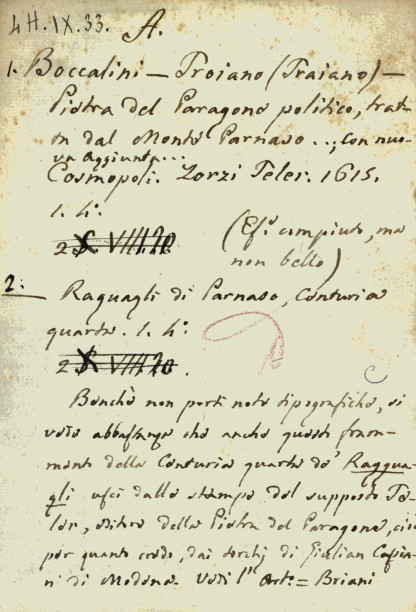 4H.IX.33. A.
1. Boccalini — Troiano (Traiano) —
Pietra del Paragone politico, trat-
ta dal Monte Parnaso ..., con nuo-
va Aggiunta...
Cosmopoli. Zorzi Teler. 1615.
1. 4:
(Es: compiuto, ma
non bello)
2.
Raguagli di Parnaso, Centuria
quarta. 1. 4:
Benchè non porti note tipografiche, si
vede abbastanza che anche questi fram-
menti della Centuria quarta de' Raggua-
gli uscì dalle stampe del supposto Te-
ler, editore della Pietra del Paragone, cioè
per quanto credo, dai torchj di Giulian Cassia-
ni di Modena. Vedi l'Art: = Briani